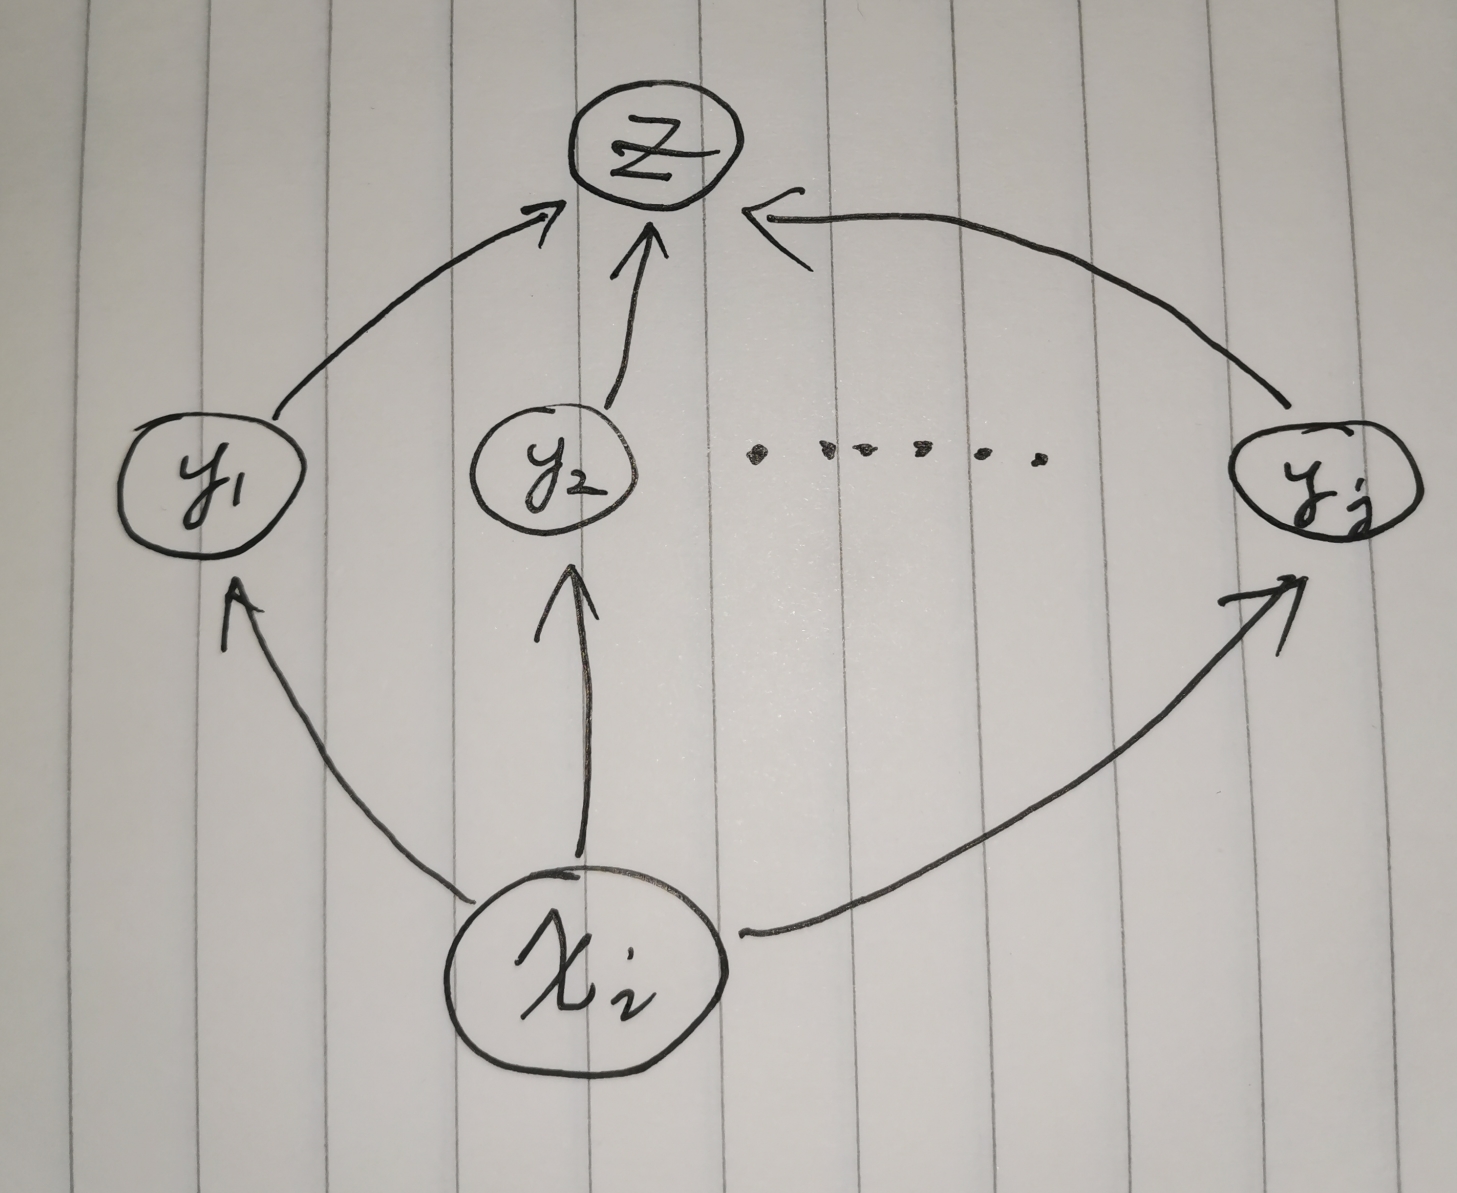 Z
y₁ y₂ ...... yⱼ
xᵢ